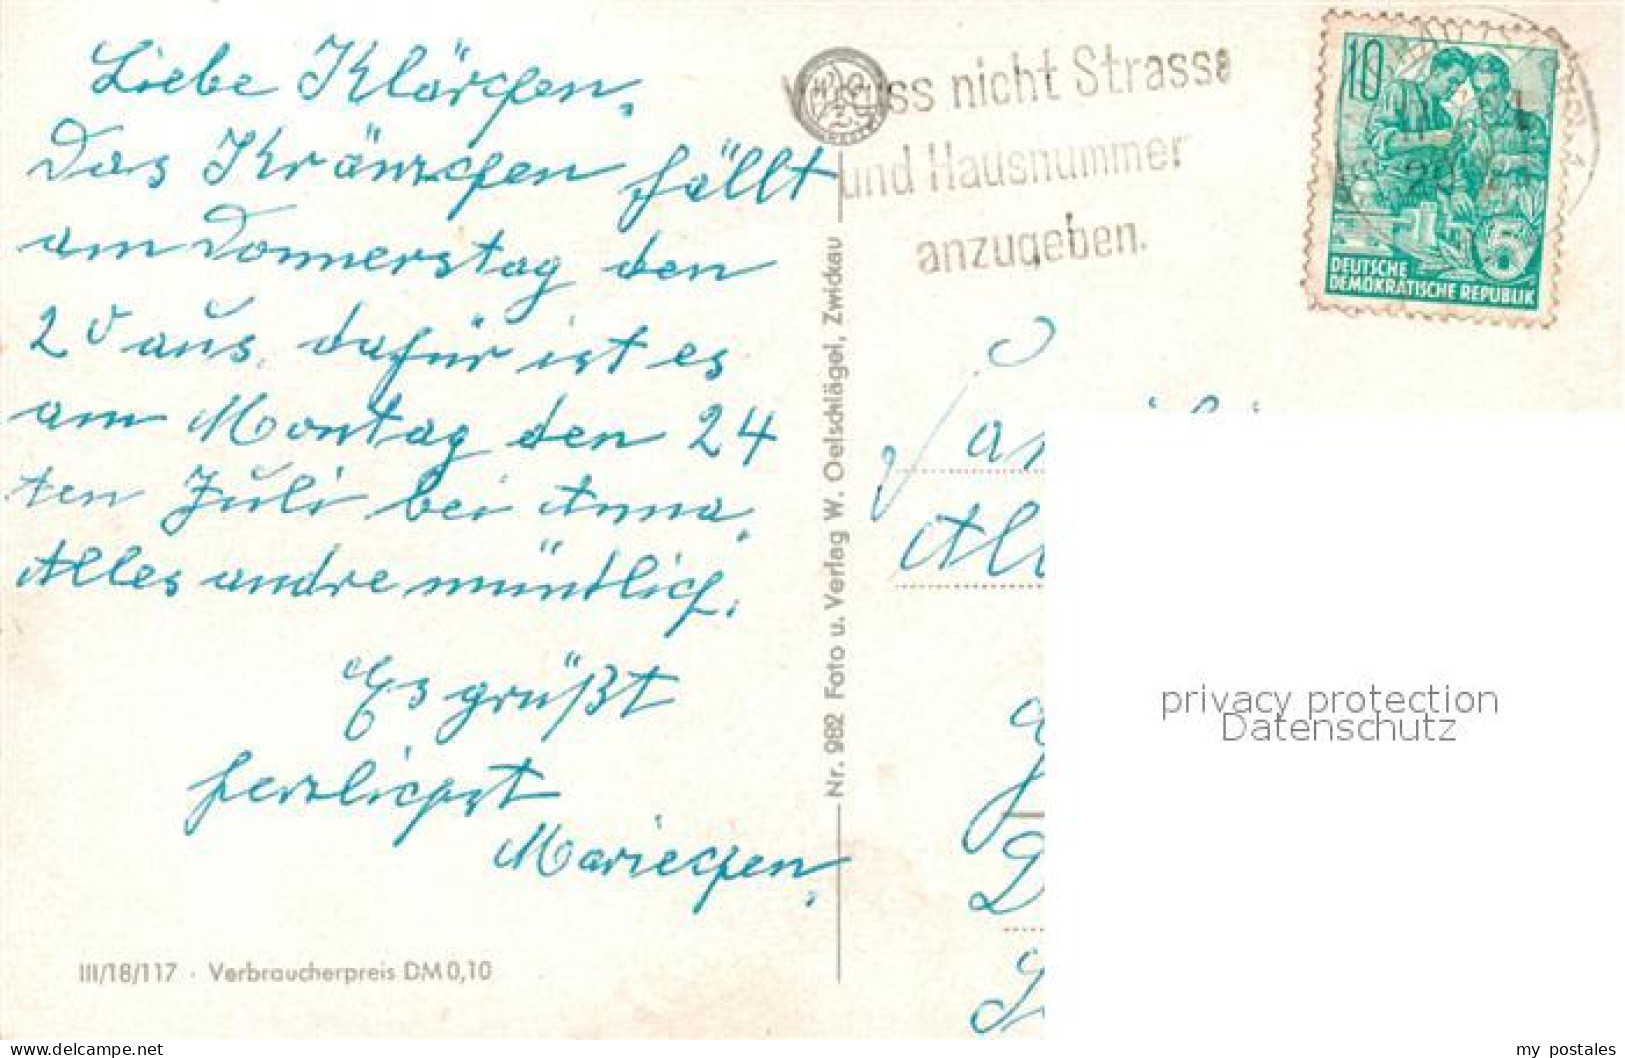 Liebe Klärchen,
Das Kränzchen fällt
am Donnerstag den
20 aus, dafür ist es
am Montag den 24
ten Juli bei Anna,
Alles andre müntlich.
Es grüßt
herzlichst
Mariechen,
III/18/117 · Verbraucherpreis DM 0,10
Nr. 982 Foto u. Verlag W. Oelschlägel, Zwickau
nicht Strasse
und Hausnummer
anzugeben.
10
5
DEUTSCHE
DEMOKRATISCHE REPUBLIK
privacy protection
Datenschutz
www.delcampe.net
my_postales